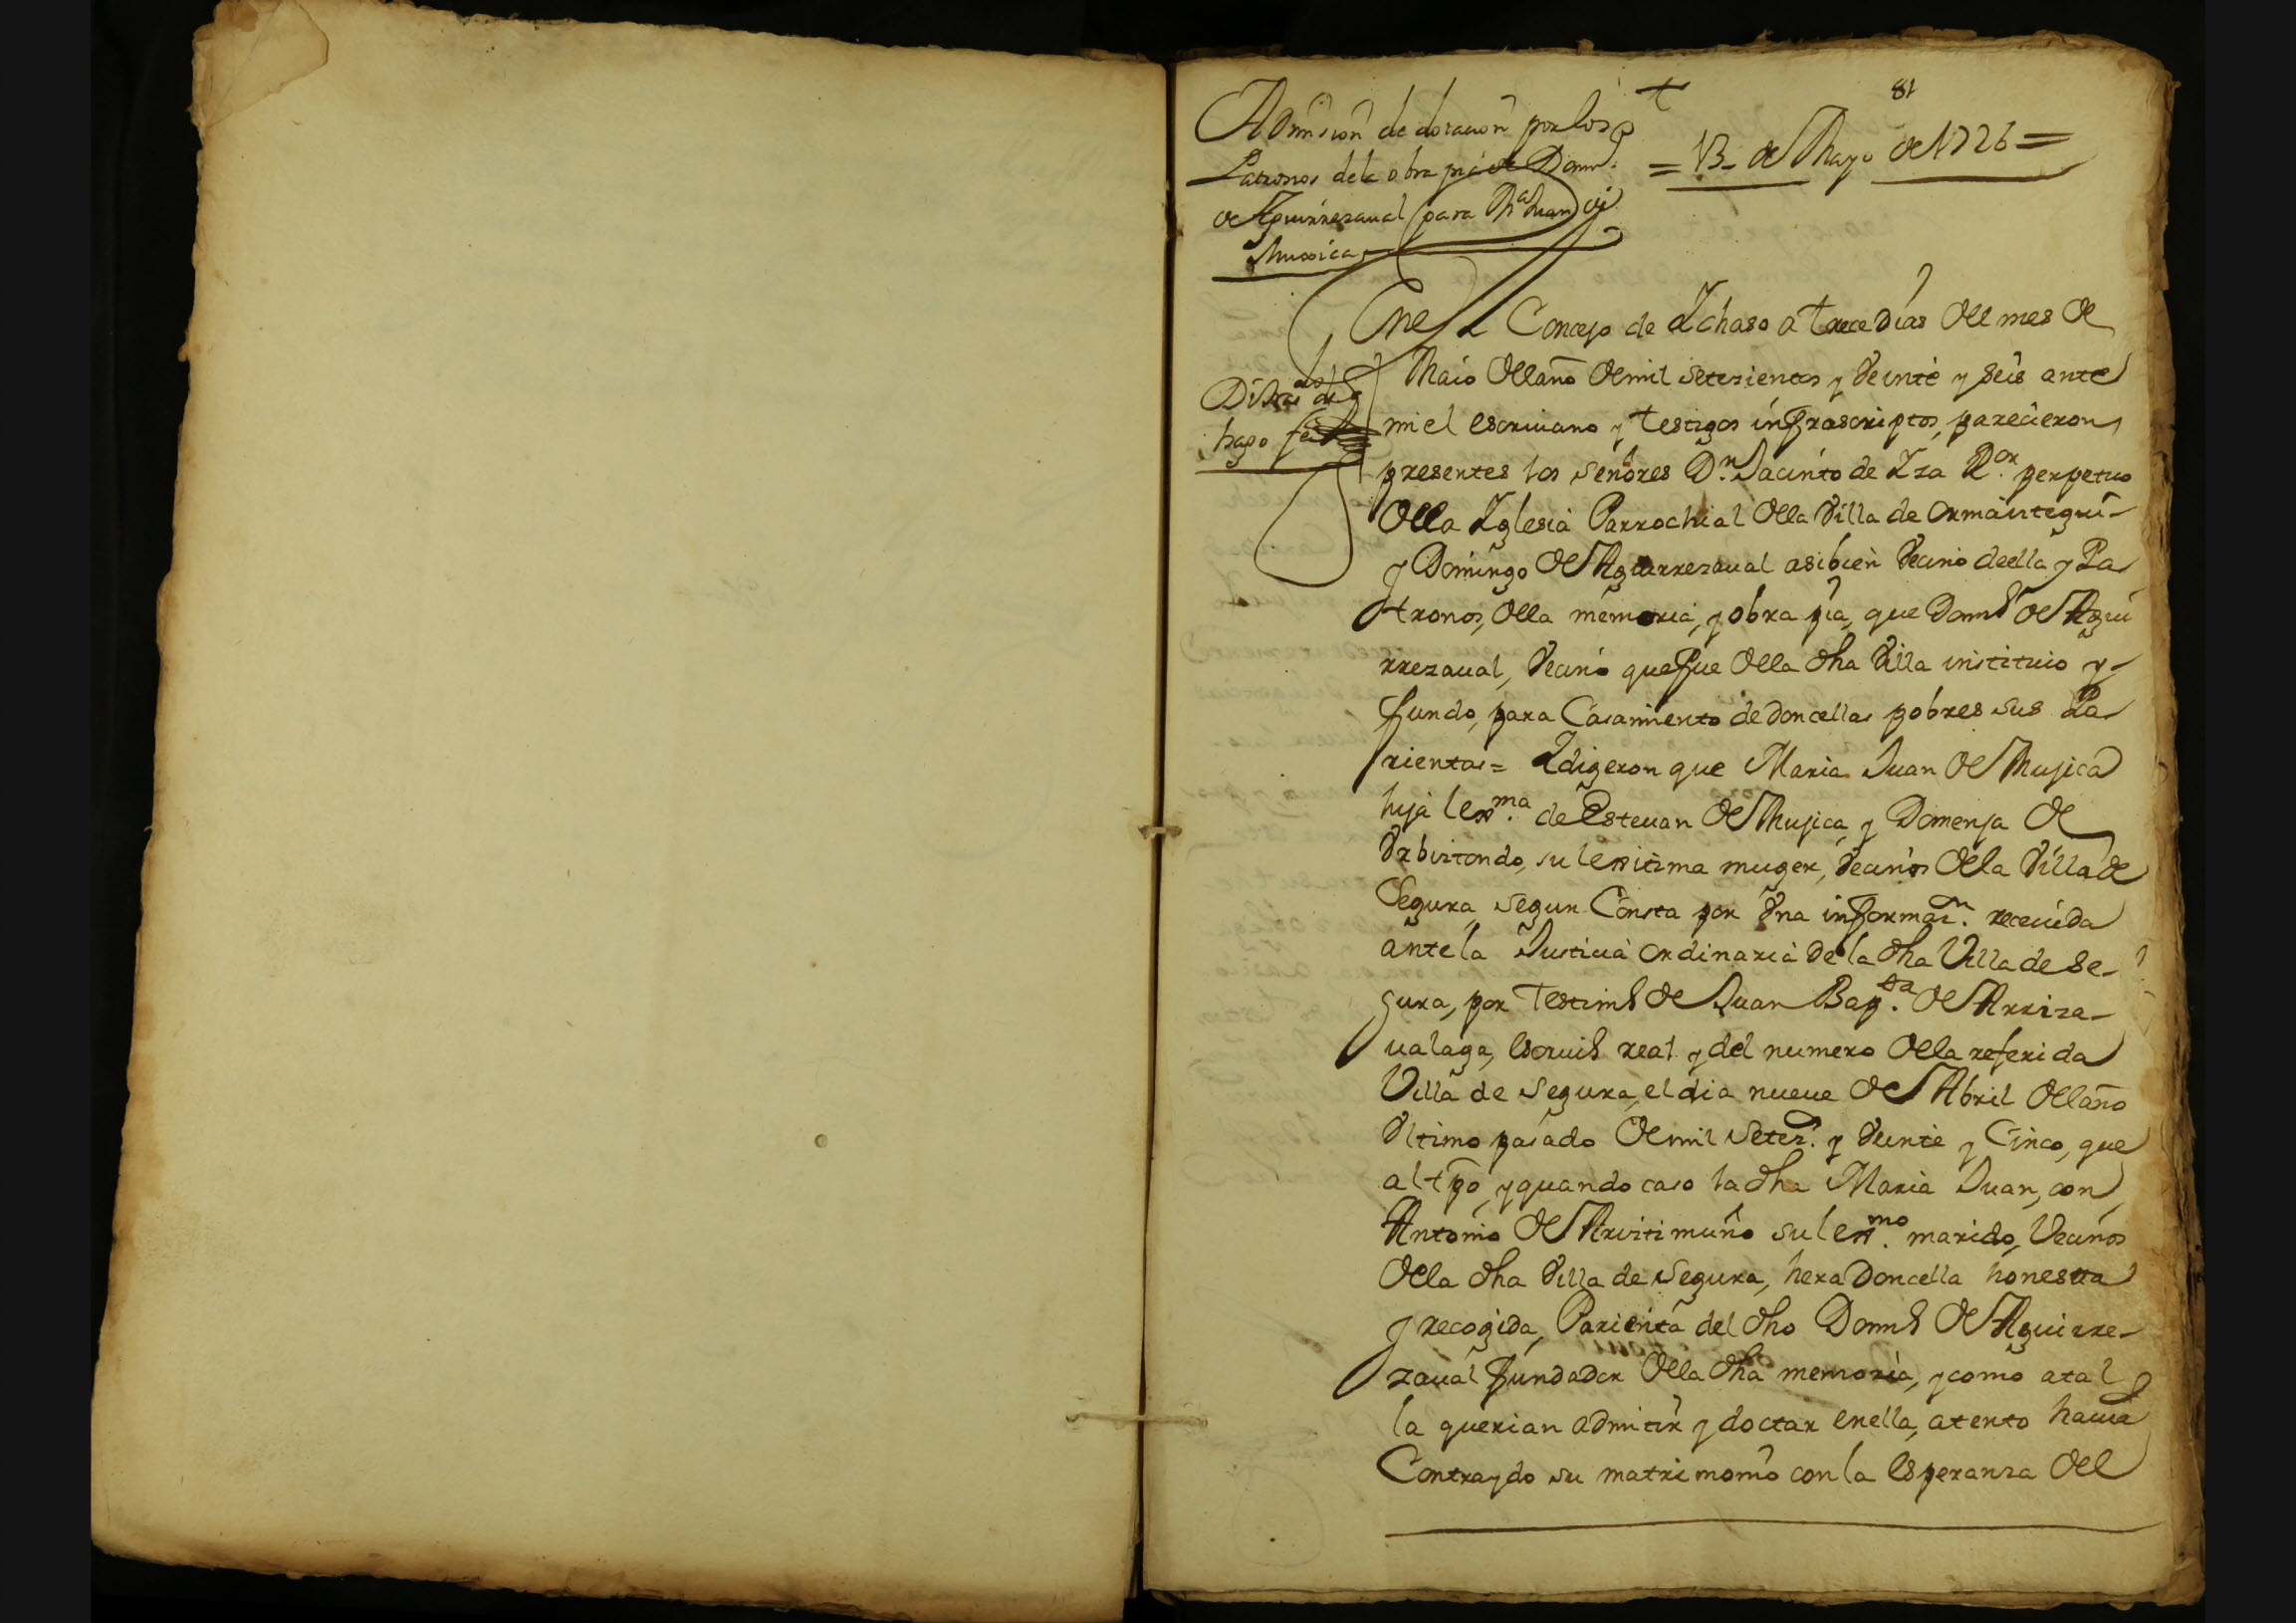 81
+
Admision de dotacion por los
Patronos de la obra pia de Domº
de Aguirrezaual para Mª Juan de
Muxica
= 13 de Mayo de 1726 =
Enel Concejo de Ichaso a trece dias del mes de
Maio del año de mil setezientos y veinte y seis ante
mi el escriuano y testigos infrascriptos, parecieron
presentes los señores Dn. Jacinto de Iza Ror. perpetuo
de la Iglesia Parrochial de la Villa de ormaiztegui-
y Domingo de Aguirrezaual asibien vecino de ella y Pa
tronos, de la memoria, y obra pia, que Domº de Agui
rrezaual, vecino que fue de la dha Villa instituio y-
fundo, para Casamiento de doncellas pobres sus Pa
rientas = I digeron que Maria Juan de Mujica
hija lexma. de Esteuan de Mujica y Domenja de
Vrbiztondo, su lexitima muger, vecinos de la Villa de
Segura segun Consta por vna informazn. receuida
ante la Justicia ordinaria de la dha Villa de Se-
gura, por testimº de Juan Bapta. de Arriza-
ualaga, escriuº real y del numero de la referida
Villa de Segura, el dia nueue de Abril del año
vltimo pasado de mil setezs. y veinte y Cinco, que
al tpo, y quando caso la dha Maria Juan, con
Antonio de Aruitimuño su lexmo. marido, vecinos
de la dha Villa de Segura, hera Doncella honesta
y recogida, Parienta del dho Domº de Aguirre-
zaual fundador de la dha memoria, y como a tal
la querian admitir y doctar en ella, atento hauia
Contraydo su matrimonio con la esperanza del
hago fee